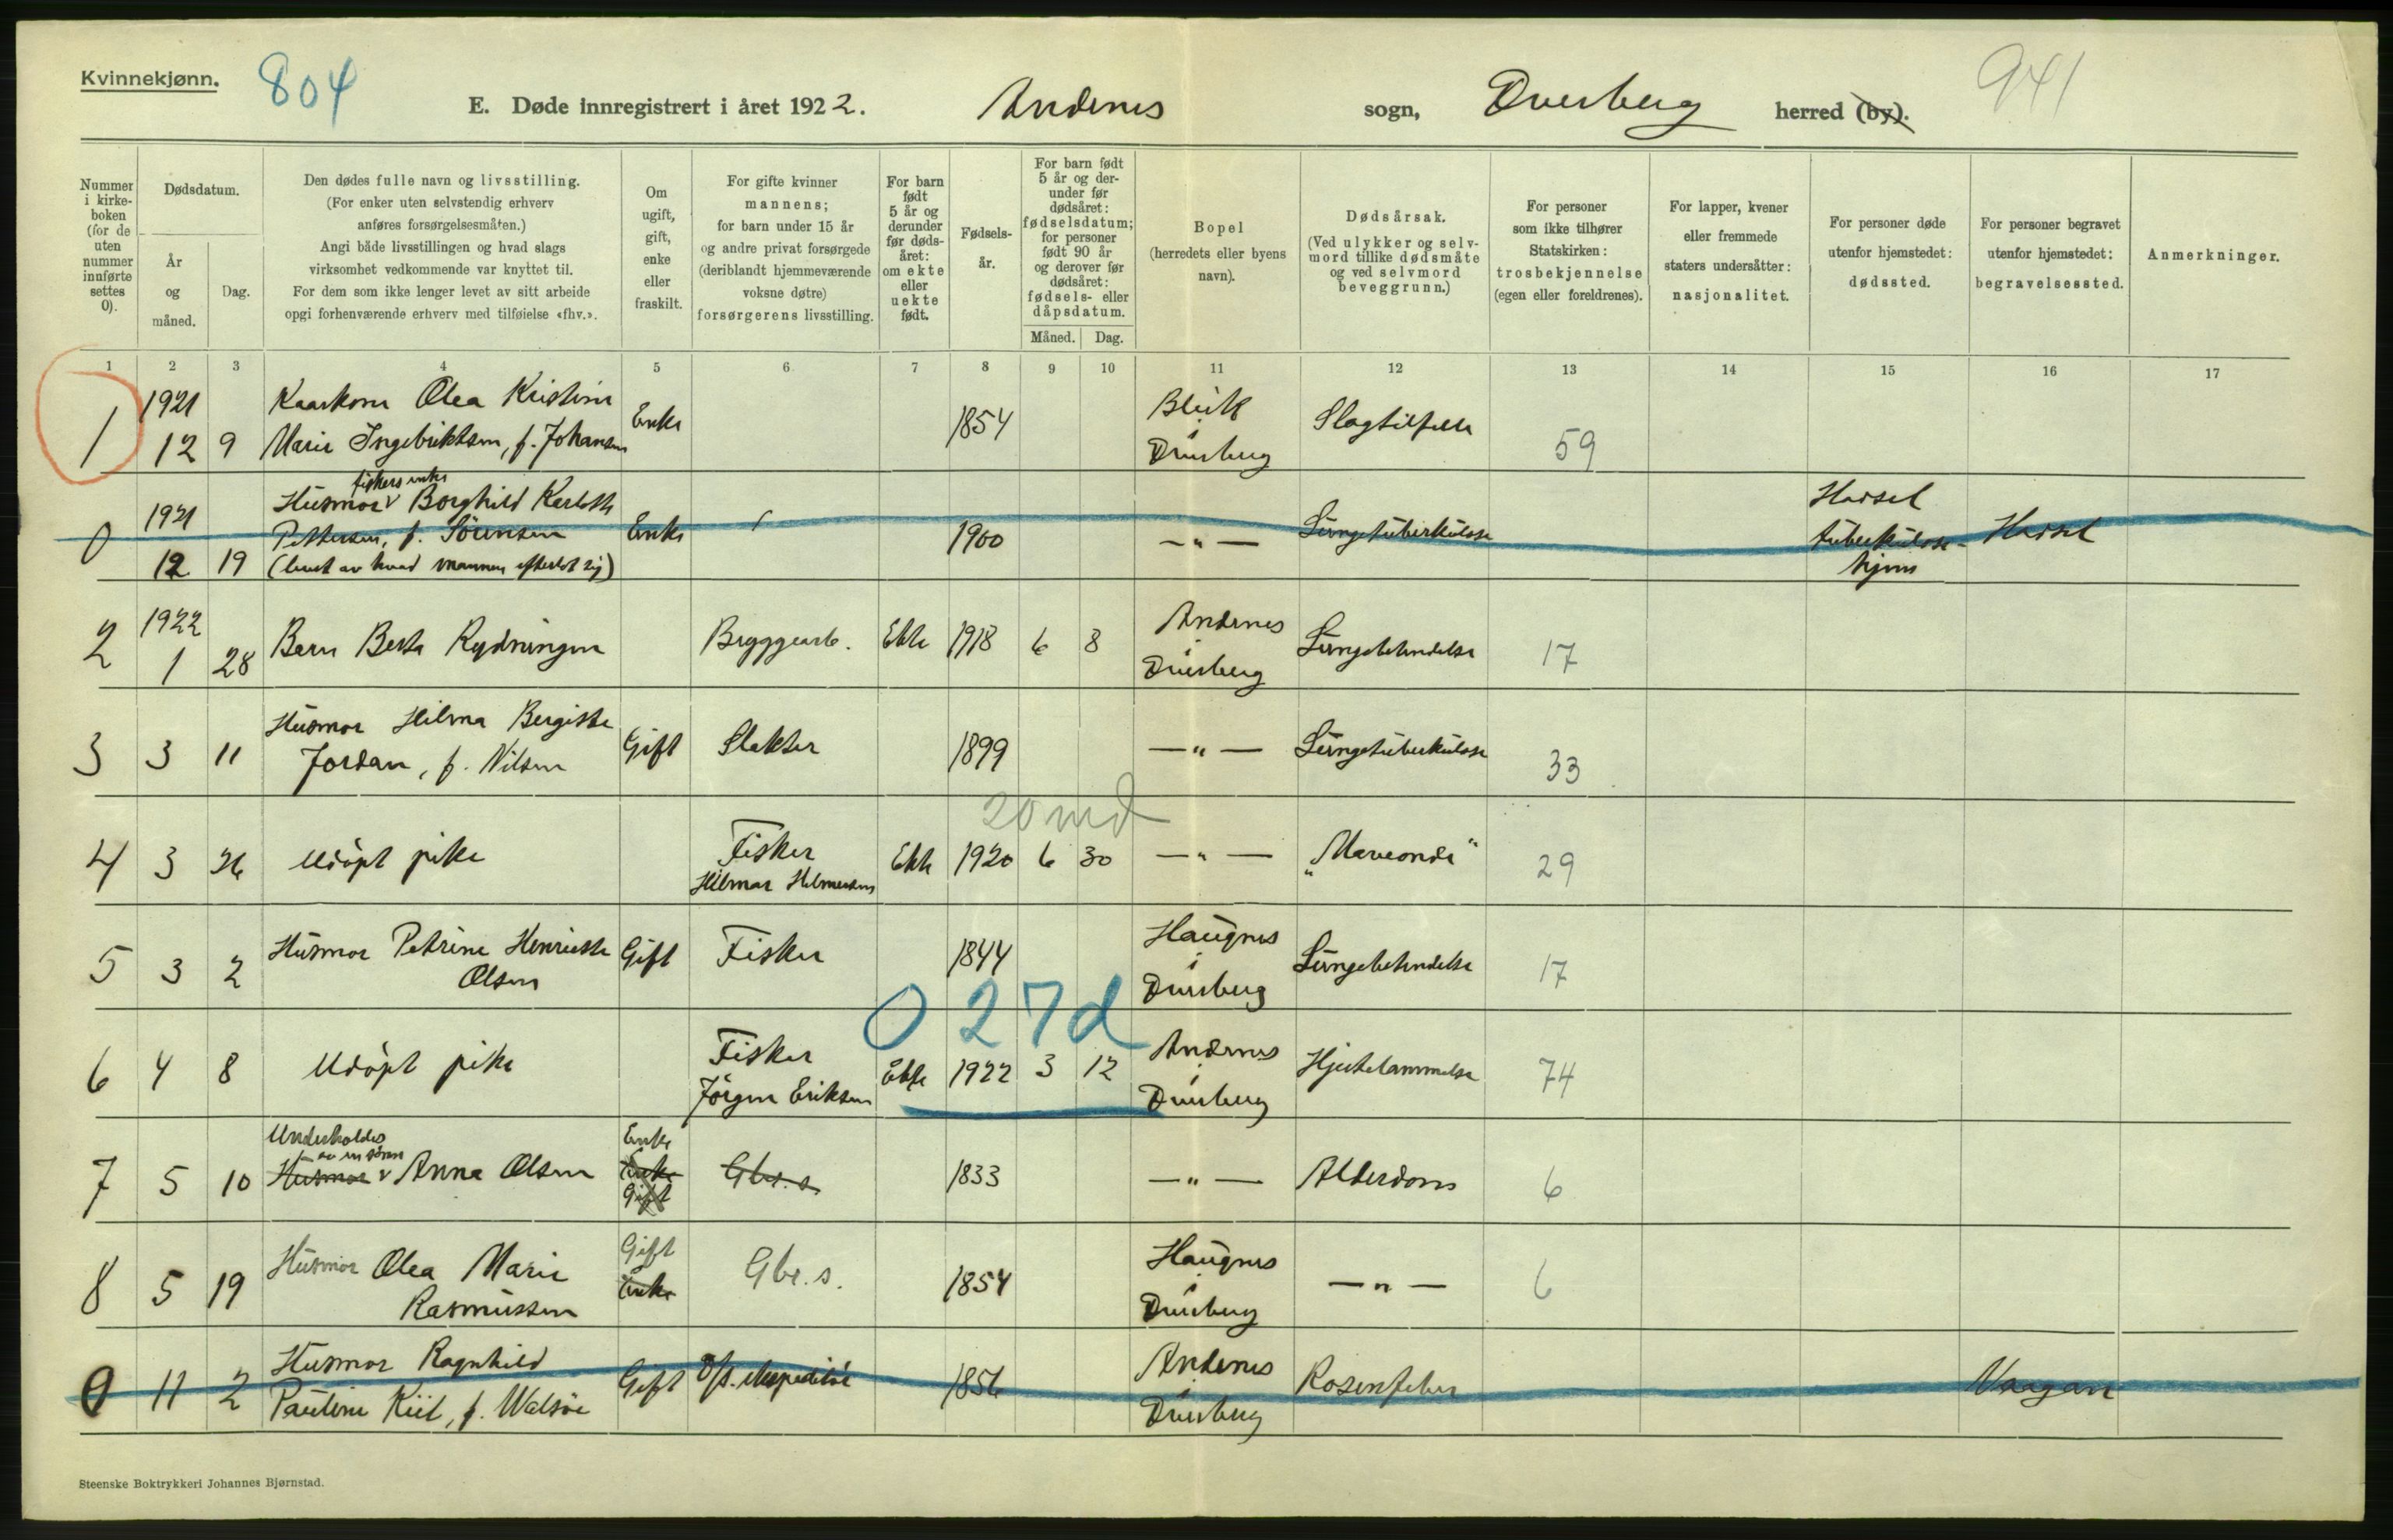 Kvinnekjønn.
804
E. Døde innregistrert i året 1922.
Andenes sogn, Dverberg herred (by).
941
Nummer i kirke-boken (for de uten nummer innførte settes 0).
Dødsdatum.
År og måned.
Dag.
Den dødes fulle navn og livsstilling.
(For enker uten selvstendig erhverv
anføres forsørgelsesmåten.)
Angi både livsstillingen og hvad slags
virksomhet vedkommende var knyttet til.
For dem som ikke lenger levet av sitt arbeide
opgi forhenværende erhverv med tilføielse «fhv.».
Om ugift, gift, enke eller fraskilt.
For gifte kvinner
mannens;
for barn under 15 år
og andre privat forsørgede
(deriblandt hjemmeværende
voksne døtre)
forsørgerens livsstilling.
For barn født 5 år og derunder før døds-året: om ekte eller uekte født.
Fødsels-år.
For barn født 5 år og der-under før dødsåret: fødselsdatum; for personer født 90 år og derover før dødsåret: fødsels- eller dåpsdatum.
Måned. Dag.
Bopel
(herredets eller byens
navn).
Dødsårsak.
(Ved ulykker og selv-
mord tillike dødsmåte
og ved selvmord
beveggrunn.)
For personer
som ikke tilhører
Statskirken:
trosbekjennelse
(egen eller foreldrenes).
For lapper, kvener
eller fremmede
staters undersåtter:
nasjonalitet.
For personer døde
utenfor hjemstedet:
dødssted.
For personer begravet
utenfor hjemstedet:
begravelsessted.
Anmerkninger.
1 2 3 4 5 6 7 8 9 10 11 12 13 14 15 16 17
1 1921 12 9 Kaarkone Olea Kristine
Marie Ingebriktsen, f. Johansen Enke 1854 Bleik i Dverberg Slagtilfelle 59
0 1921 12 19 Husmor v Borghild Karlotte
fiskers enke
Pettersen, f. Sörensen Enke 1900 — " — Lungetuberkulose Hadsel tuberkulose-hjem Hadsel
(levet av hvad mannen efterlot sig)
2 1922 1 28 Barn Berta Rydningen Bryggearb. Ekte 1918 6 8 Andenes i Dverberg Lungebetendelse 17
3 3 11 Husmor Hilma Bergitte
Jordan, f. Nilsen Gift Slakter 1899 — " — Lungetuberkulose 33
20 md
4 3 26 Udöpt pike Fisker
Hilmar Hilmersen Ekte 1920 6 30 — " — „Maveonde" 29
5 3 2 Husmor Petrine Henriette
Olsen Gift Fisker 1844 Haugnes i Dverberg Lungebetendelse 17
0 27d
6 4 8 Udöpt pike Fisker
Jörgen Eriksen Ekte 1922 3 12 Andenes i Dverberg Hjertelammelse 74
7 5 10 Underholdes
av en sönn
Husmor v Anna Olsen Enke Enke Gift Gbr. s. 1833 — " — Alderdom 6
8 5 19 Husmor Olea Marie
Rasmussen Gift Enke Gbr. s. 1854 Haugnes i Dverberg — " — 6
0 11 2 Husmor Ragnhild
Pauline Kiil, f. Walsöe Gift D/s. ekspeditör 1856 Andenes i Dverberg Rosenfeber Vaagan
Steenske Boktrykkeri Johannes Bjørnstad.